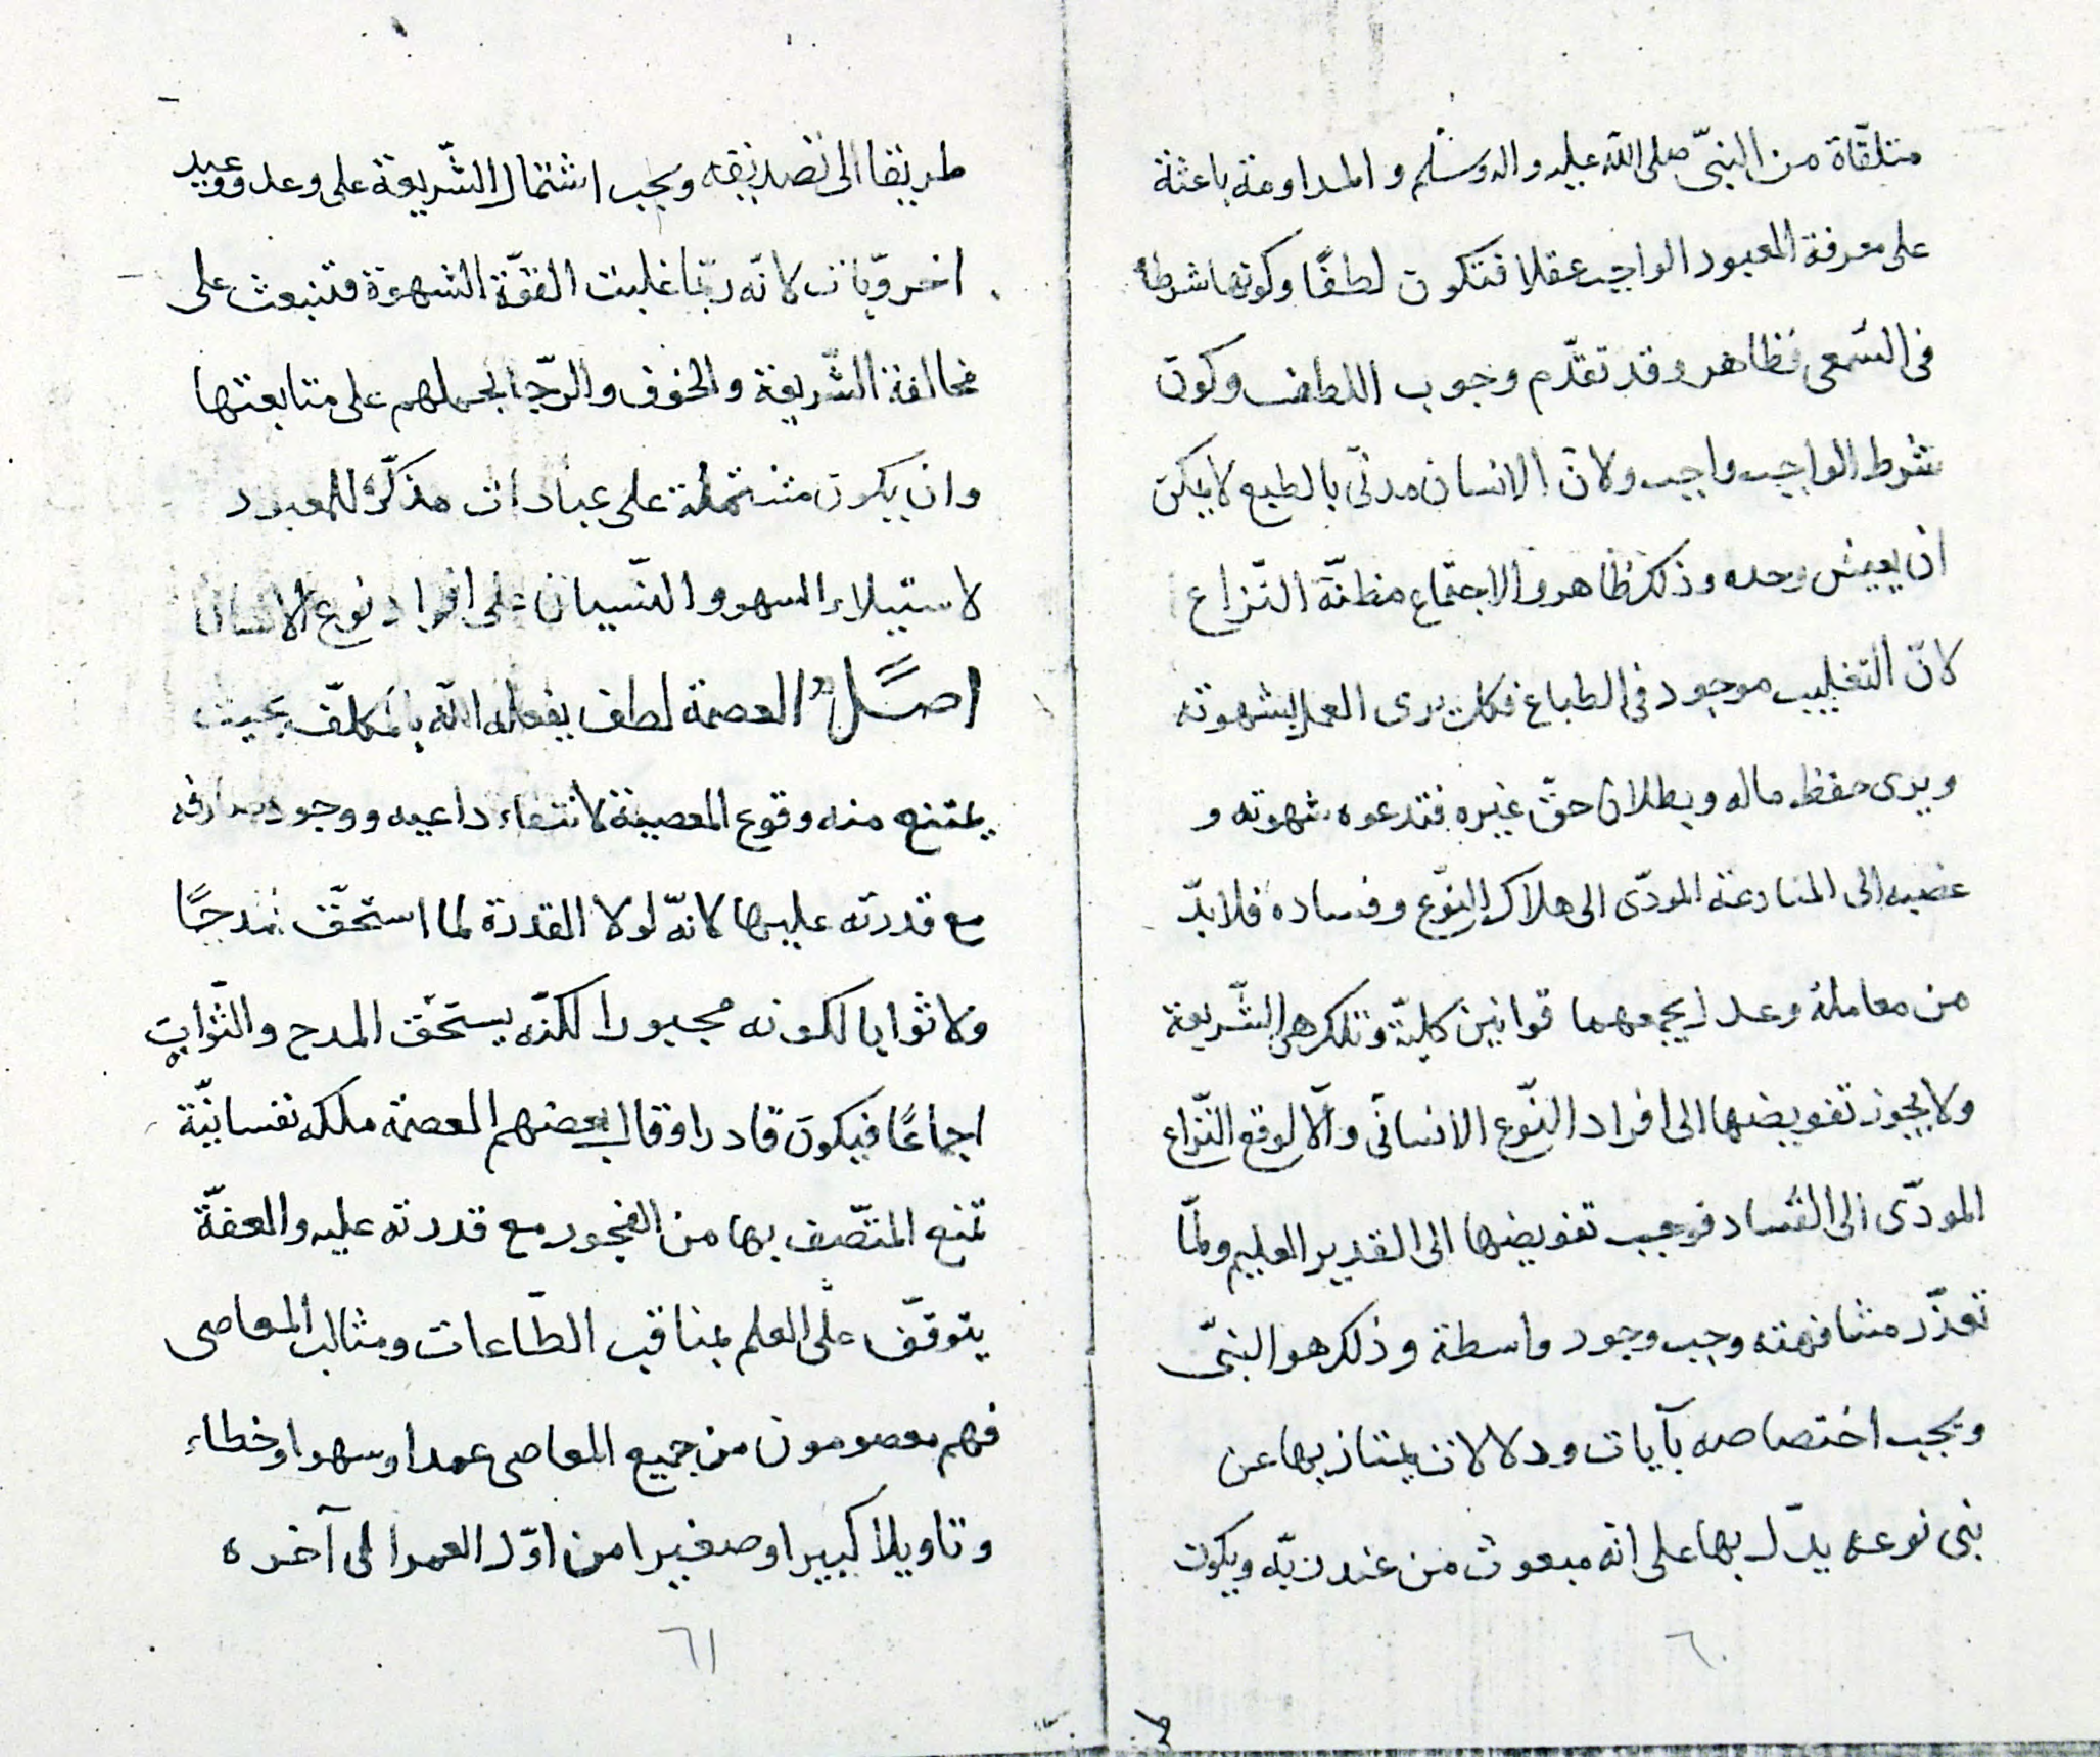 متلقّاة من النبىّ صلى الله عليه واله وسلم والمداومة باعثة
على معرفة المعبود الواجب عقلا فتكون لطفًا وكونها شرطا
فى السّمعى فظاهر وقد تقدّم وجوب اللطف وكون
شرط الواجب واجب ولانّ الانسان مدنّى بالطبع لا يمكن
ان يعيش وحده وذلك ظاهر والاجتماع مظنّة النّزاع
لانّ التغليب موجود فى الطباع فكل يرى العمل بشهوته
ويرى حفظ ماله وبطلان حقّ غيره فتدعوه شهوته و
غضبه الى المنازعة المودّى الى هلاك النوّع وفساده فلابدّ
من معاملة وعدل يجمعهما قوانين كليّة وتلك هى الشّريعة
ولا يجوز تفويضها الى افراد النوّع الانسانّى والّا لوقع النّزاع
المودّى الى الفساد فوجب تفويضها الى القدير العليم ولمّا
تعذّر مشافهته وجب وجود واسطة وذلك هو النبىّ
ويجب اختصاصه بآيات ودلالات يمتاز بها عن
بنى نوعه يدّل بها على انّه مبعوث من عند ربّه ويكون
٦٠
طريقا الى تصديقه ويجب اشتمال الشّريعة على وعد ووعيد
اخرويّات لانّه ربّما غلبت القوّة الشهوة فتنبعث على
مخالفة الشّريعة والخوف والرّجا لحملهم على متابعتها
وان يكون مشتملة على عبادات مذكّرة للمعبود
لاستيلاء السهو والنّسيان على افراد نوع الانسان
اصل العصمة لطف يفعله الله بالمكلّف بحيث
يمتنع منه وقوع المعصية لانتفاء داعيه ووجود صارفه
مع قدرته عليها لانّه لولا القدرة لما استحقّ مدحًا
ولا ثوابا لكونه مجبورا لكنّه يستحقّ المدح والثّواب
اجماعًا فيكون قادرا وقال بعضهم العصمة ملكه نفسانيّة
تمنع المتّصف بها من الفجور مع قدرته عليه والعفّة
يتوقّف على العلم بمناقب الطّاعات ومثالب المعاصى
فهم معصومون من جميع المعاصى عمدا وسهوا وخطاء
وتاويلا كبيرا وصغيرا من اوّل العمر الى آخره
٦١